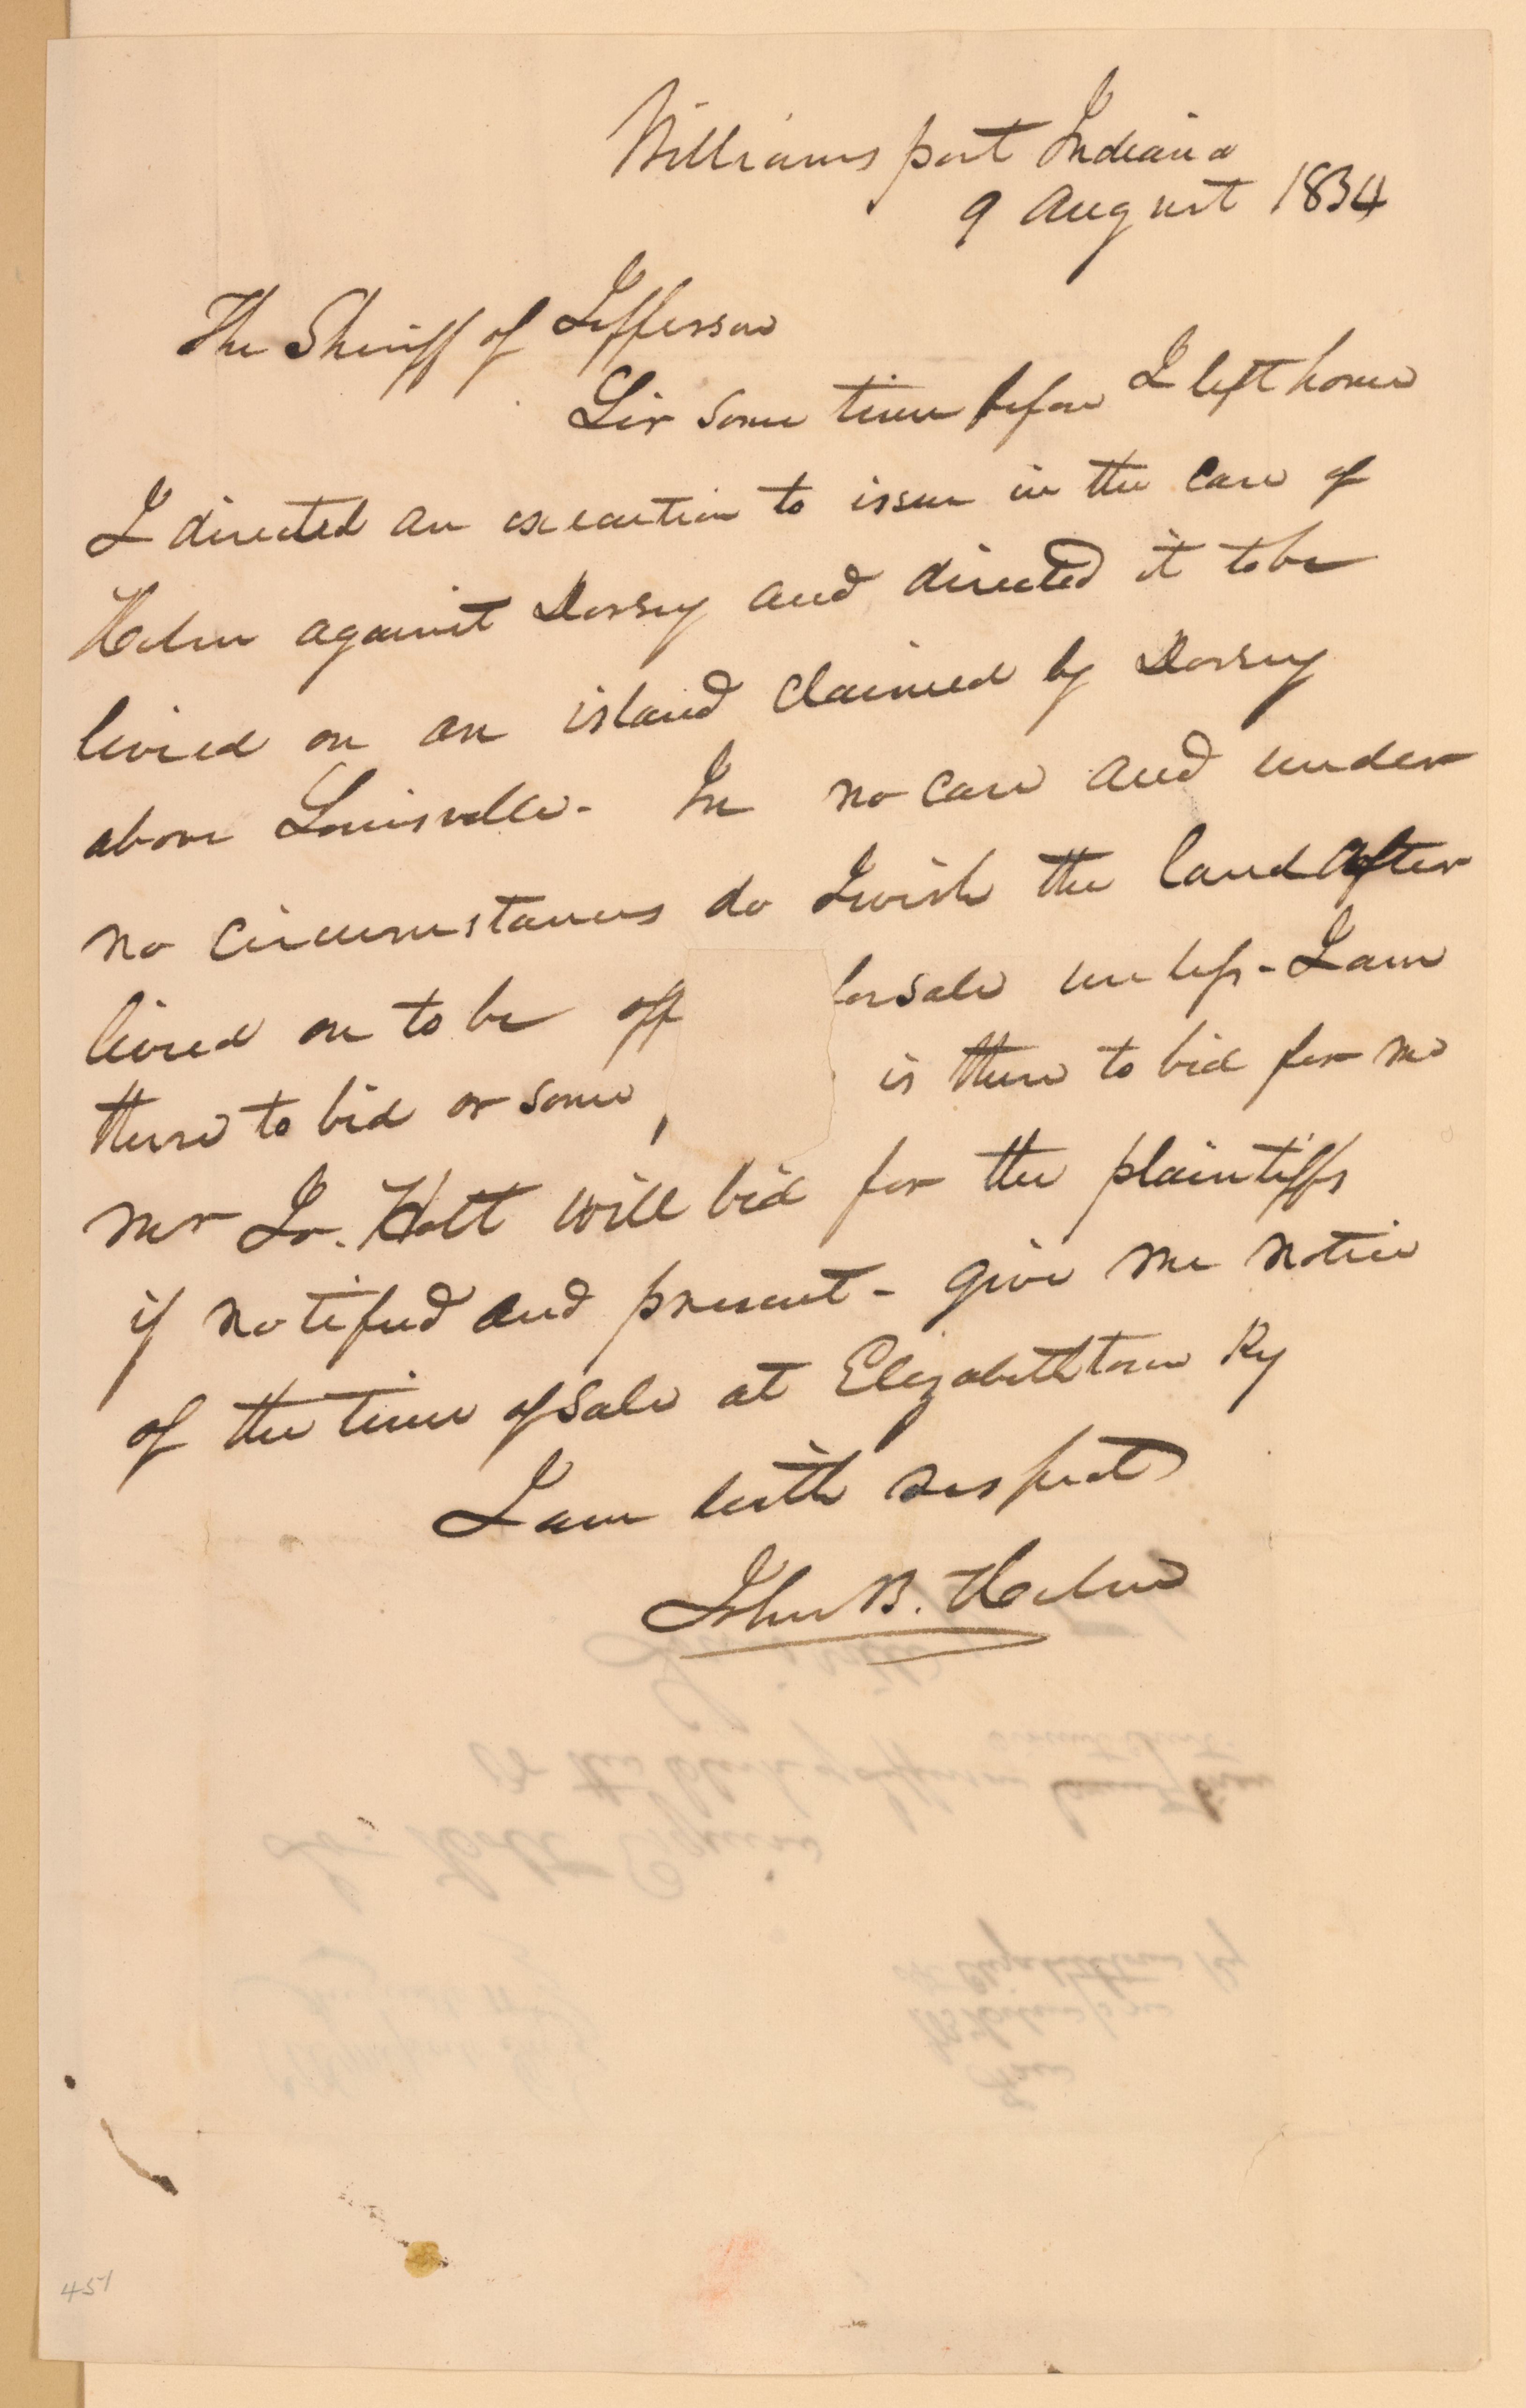 Williams port Indiana
9 August 1834
The Sheriff of Jefferson
Sir some time before I left home
I directed an execution to issue in the case of
Helm against Dorsey and directed it to be
livied on an island claimed by Dorsey
above Louisville - In no case and under
no circumstances do I wish the land after
livied on to be off for sale unless - I am
there to bid or some is there to bid for me
Mr Jo. Holt will bid for the plaintiffs
if notified and present - give me notice
of the time of sale at Elizabethtown Ky
I am with respect
John B. Helm
451